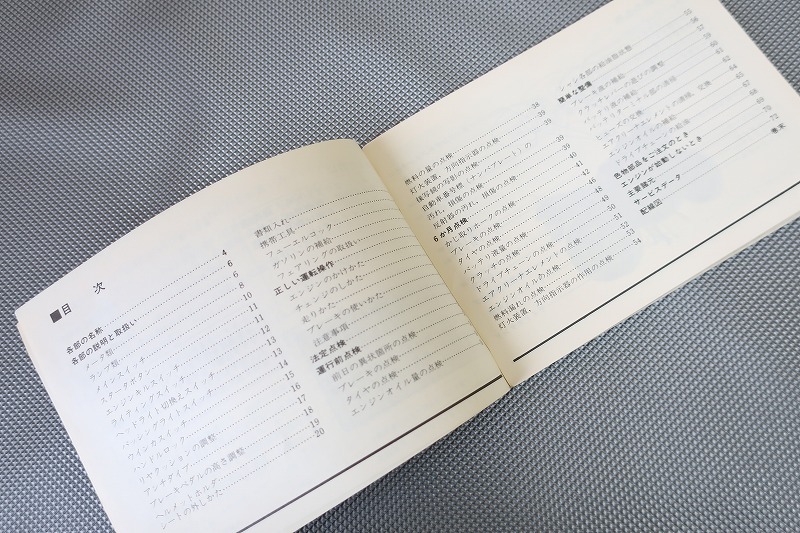 ■目 次
各部の名称 4
各部の説明と取扱い 6
メータ類 6
ランプ類 8
メインスイッチ 10
スタータボタン 11
エンジンキルスイッチ 11
ライティングスイッチ 12
ヘッドライト切換えスイッチ 13
パッシングライトスイッチ 14
ウインカスイッチ 15
ハンドルロック 16
リヤクッションの調整 17
アンチダイブ 18
ブレーキペダルの高さ調整 19
ヘルメットホルダ 20
シートの外しかた
書類入れ
携帯工具
フューエルコック
ガソリンの補給
フェアリングの取扱い
正しい運転操作
エンジンのかけかた
チェンジのしかた
走りかた
ブレーキの使いかた
注意事項
法定点検
運行前点検
前日の異状箇所の点検
ブレーキの点検
タイヤの点検
エンジンオイル量の点検
燃料の量の点検 38
灯火装置、方向指示器の点検 38
後写鏡の写影の点検 39
自動車番号標(ナンバプレート)の
汚れ、損傷の点検 39
反射器の汚れ、損傷の点検 39
6か月点検 40
かじ取りホークの点検 41
ブレーキの点検 42
タイヤの点検 46
バッテリ液量の点検 48
クラッチの点検 49
ドライブチェーンの点検 50
エアクリーナエレメントの点検 51
エンジンオイルの点検 52
燃料漏れの点検 53
灯火装置、方向指示器の作用の点検 54
シャシ各部の給油脂状態 55
簡単な整備 56
ブレーキ液の補給 57
クラッチレバーの遊びの調整 59
バッテリ液の補給 60
バッテリターミナル部の清掃 63
ヒューズの交換 62
エアクリーナエレメントの清掃、交換 64
エンジンオイルの補給 65
ドライブチェーンの給油 67
色物部品をご注文のとき 68
エンジンが始動しないとき 69
主要諸元 70
サービスデータ 72
配線図 巻末